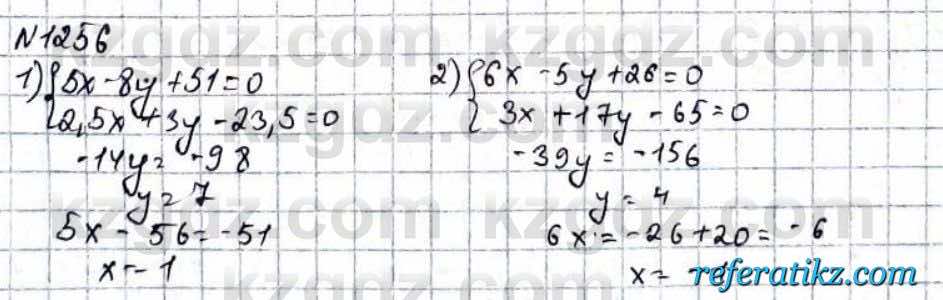 N1256
1) {5x - 8y + 51 = 0
2,5x + 3y - 23,5 = 0
-14y = -98
y = 7
5x - 56 = -51
x = 1
2) {6x - 5y + 26 = 0
3x + 17y - 65 = 0
-39y = -156
y = 4
6x = -26 + 20 = -6
x = -1
referatikz.com